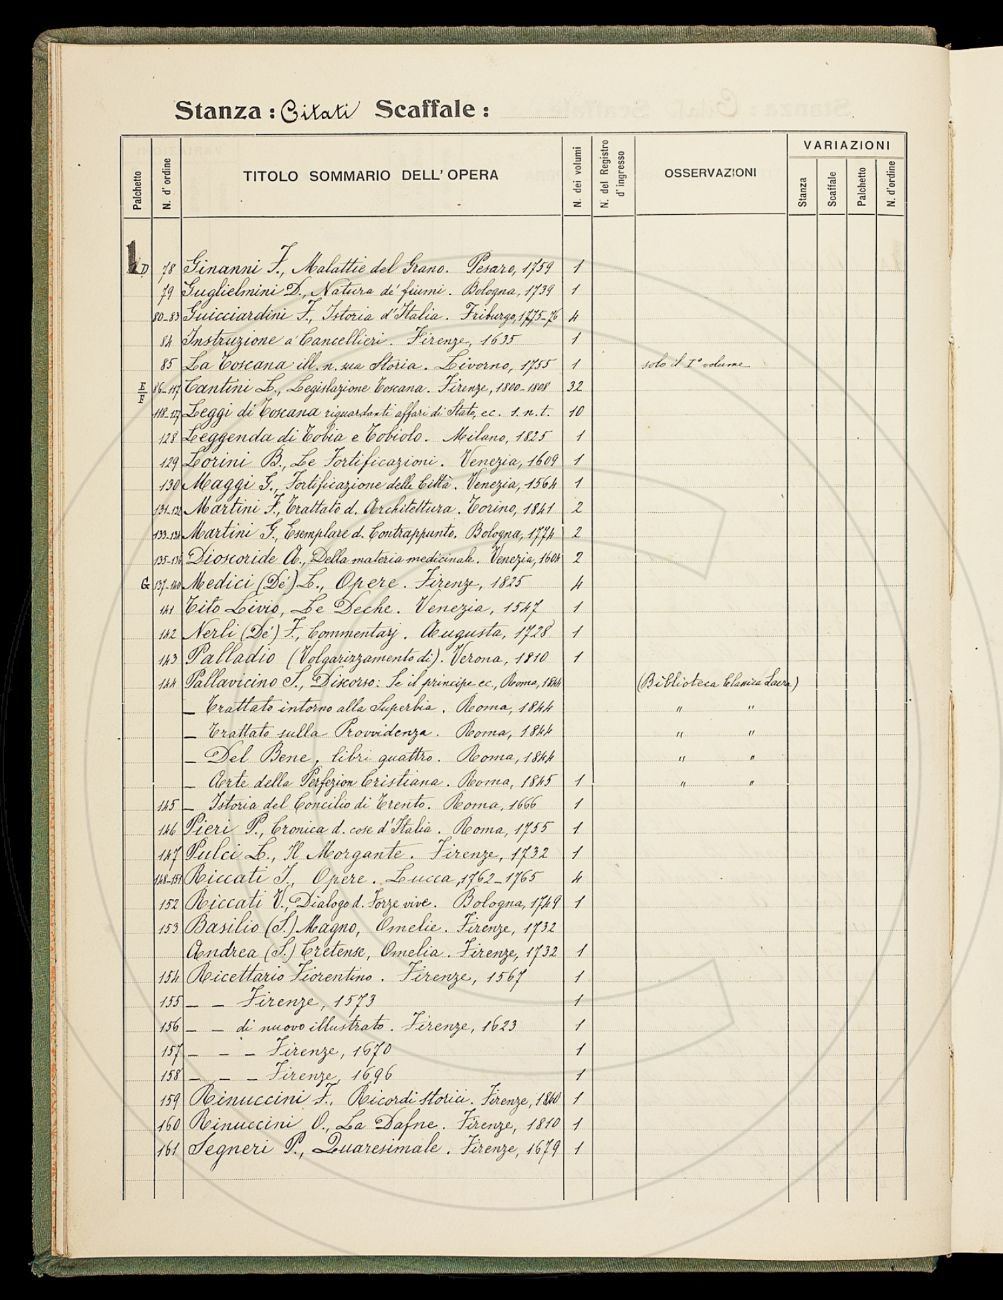 Stanza: Citati Scaffale:
Palchetto N. d'ordine TITOLO SOMMARIO DELL'OPERA N. dei volumi N. del Registro d'ingresso OSSERVAZIONI VARIAZIONI Stanza Scaffale Palchetto N. d'ordine
1 D 78 Ginanni F., Malattie del Grano. Pesaro, 1759 1
79 Guglielmini D., Natura de' fiumi. Bologna, 1739 1
80-83 Guicciardini F., Istoria d'Italia. Friburgo, 1775-76 4
84 Instruzione a' Cancellieri. Firenze, 1635 1
85 La Toscana ill. n. sua Storia. Livorno, 1755 1 solo il I° volume
E F 86-117 Cantini L., Legislazione Toscana. Firenze, 1800-1808 32
118-127 Leggi di Toscana riguardanti affari di Stato, ec. s.n.t. 10
128 Leggenda di Tobia e Tobiolo. Milano, 1825 1
129 Lorini B., Le Fortificazioni. Venezia, 1609 1
130 Maggi G., Fortificazione delle Città. Venezia, 1564 1
131-132 Martini F., Trattato d. Architettura. Torino, 1841 2
133-134 Martini G., Esemplare d. Contrappunto. Bologna, 1774 2
135-136 Dioscoride A., Della materia medicinale. Venezia, 1604 2
G 137-140 Medici (De') L., Opere. Firenze, 1825 4
141 Tito Livio, Le Deche. Venezia, 1547 1
142 Nerli (De') F., Commentarj. Augusta, 1728 1
143 Palladio (Volgarizzamento di). Verona, 1810 1
144 Pallavicino S., Discorso: Se il principe ec., Roma, 1844 (Biblioteca Classica Sacra)
— Trattato intorno alla Superbia. Roma, 1844 " "
— Trattato sulla Provvidenza. Roma, 1844 " "
— Del Bene, libri quattro. Roma, 1844 " "
— Arte della Perfezion Cristiana. Roma, 1845 1 " "
145 — Istoria del Concilio di Trento. Roma, 1666 1
146 Pieri P., Cronica d. cose d'Italia. Roma, 1755 1
147 Pulci L., Il Morgante. Firenze, 1732 1
148-151 Riccati J., Opere. Lucca, 1762-1765 4
152 Riccati V., Dialogo d. Forze vive. Bologna, 1749 1
153 Basilio (S.) Magno, Omelie. Firenze, 1732
Andrea (S.) Cretense, Omelia. Firenze, 1732 1
154 Ricettario Fiorentino. Firenze, 1567 1
155 — — Firenze, 1573 1
156 — — di nuovo illustrato. Firenze, 1623 1
157 — — — Firenze, 1670 1
158 — — — Firenze, 1696 1
159 Rinuccini F., Ricordi storici. Firenze, 1840 1
160 Rinuccini O., La Dafne. Firenze, 1810 1
161 Segneri P., Quaresimale. Firenze, 1679 1